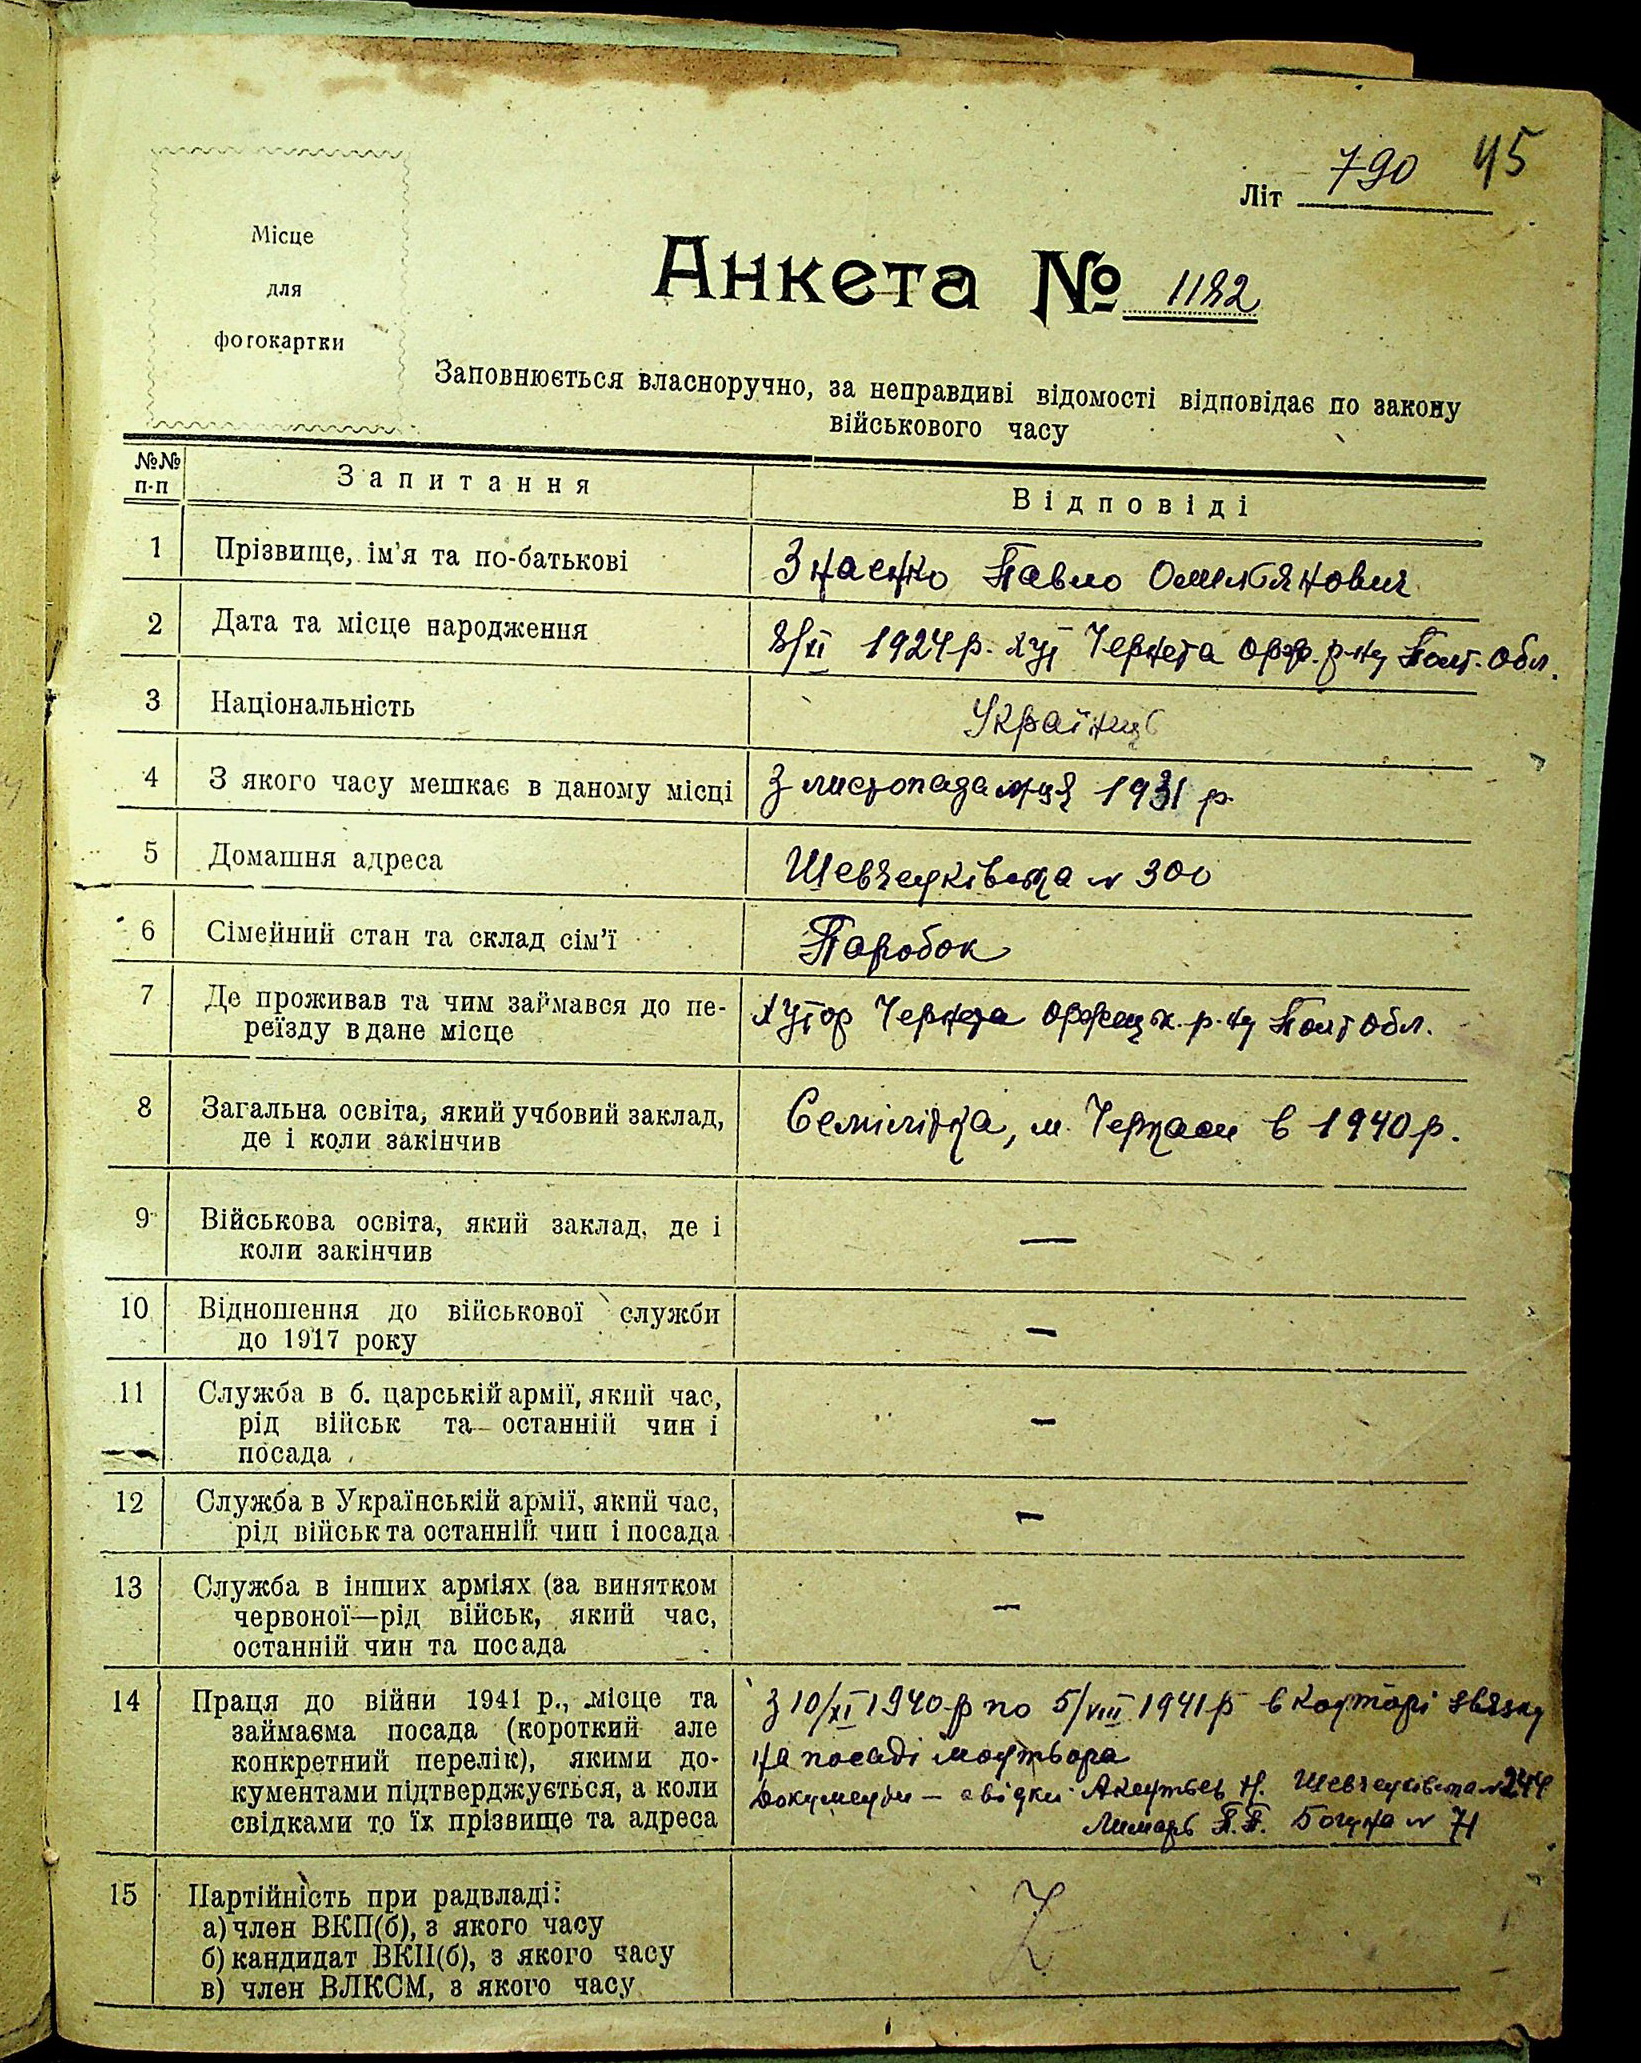 45
Літ 790
Місце
для
фотокартки
Анкета № 1182
Заповнюється власноручно, за неправдиві відомості відповідає по закону
військового часу
№№ п-п Запитання Відповіді
1 Прізвище, ім'я та по-батькові Знаєнко Павло Омелянович
2 Дата та місце народження 8/XI 1924 р. хут Чернета Орж. р-ну Полт. Обл.
3 Національність Українць
4 З якого часу мешкає в даному місці З листопада м-ця 1931 р.
5 Домашня адреса Шевченківська № 300
6 Сімейний стан та склад сім'ї Паробок
7 Де проживав та чим займався до пе-
реїзду в дане місце
Хутор Чернета Оржецьк. р-ну Полт Обл.
8 Загальна освіта, який учбовий заклад,
де і коли закінчив
Семилітка, м. Черкаси в 1940 р.
9 Військова освіта, який заклад, де і
коли закінчив
—
10 Відношення до військової служби
до 1917 року
—
11 Служба в б. царській армії, який час,
рід військ та останній чин і
посада
—
12 Служба в Українській армії, який час,
рід військ та останній чин і посада
—
13 Служба в інших арміях (за винятком
червоної—рід військ, який час,
останній чин та посада
—
14 Праця до війни 1941 р., місце та
займаєма посада (короткий але
конкретний перелік), якими до-
кументами підтверджується, а коли
свідками то їх прізвище та адреса
З 10/XI 1940 р по 5/VIII 1941 р в конторі звязку
на посаді монтьора
Документи — свідки: Н. Шевченківська № 244
Лимарь П.П. Богуна № 71
15 Партійність при радвладі:
а) член ВКП(б), з якого часу
б) кандидат ВКП(б), з якого часу
в) член ВЛКСМ, з якого часу